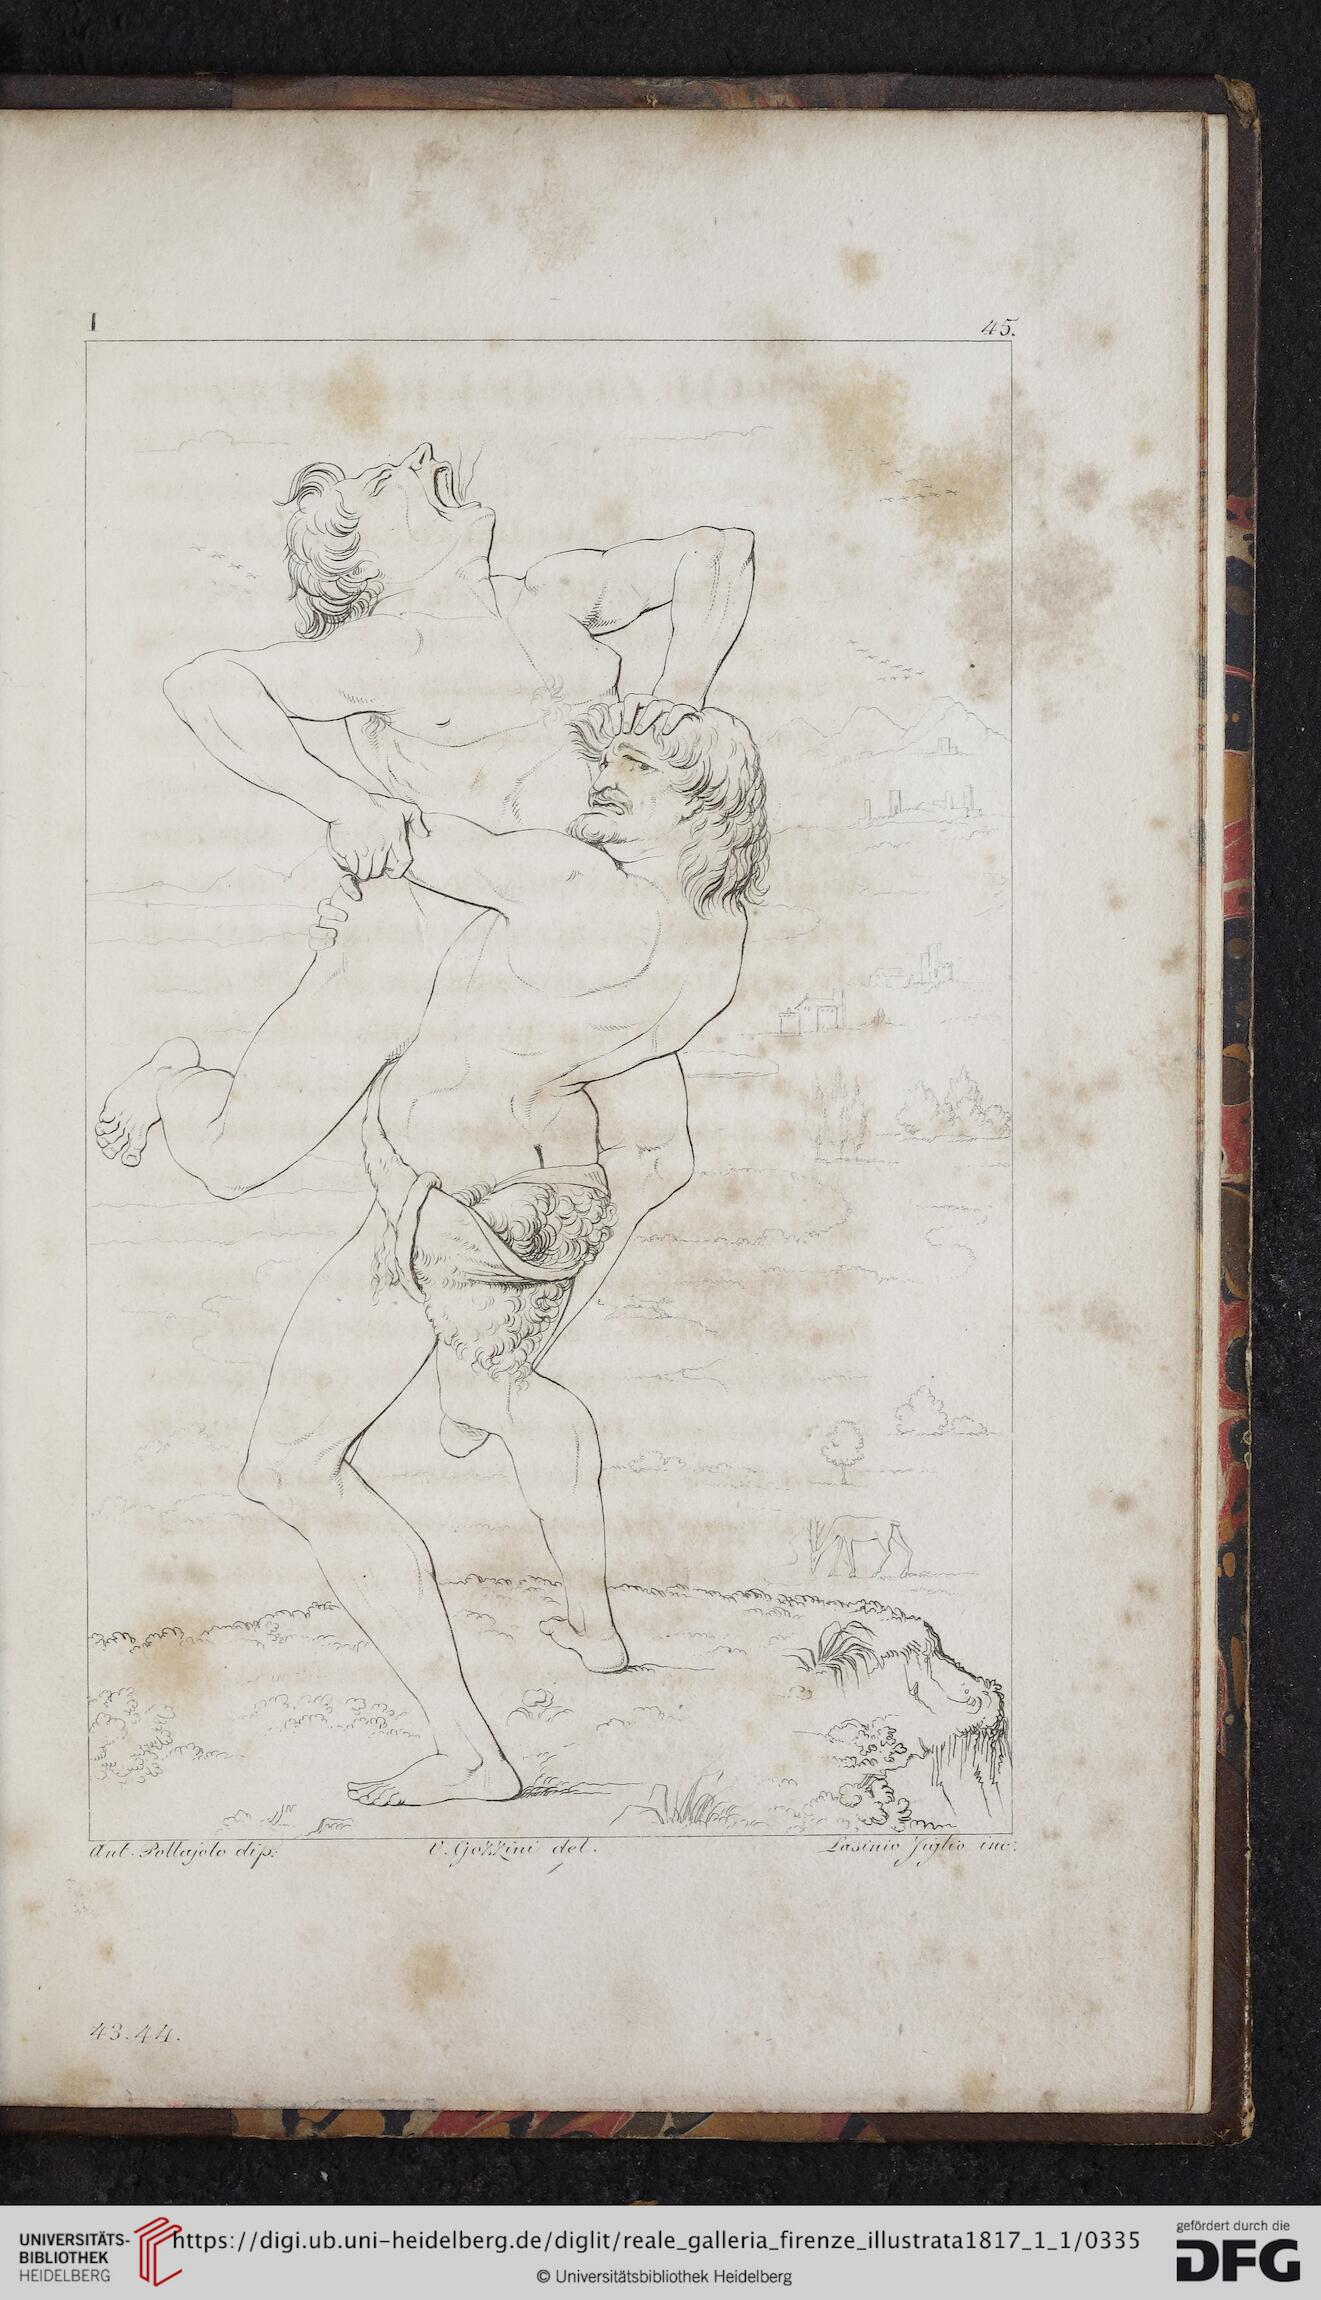 I
45.
Ant. Pollajolo dip:
V. Gozzini del.
Lasinio figlio inc:
43.44.
UNIVERSITÄTS-
BIBLIOTHEK
HEIDELBERG
https://digi.ub.uni-heidelberg.de/diglit/reale_galleria_firenze_illustrata1817_1_1/0335
© Universitätsbibliothek Heidelberg
gefördert durch die
DFG